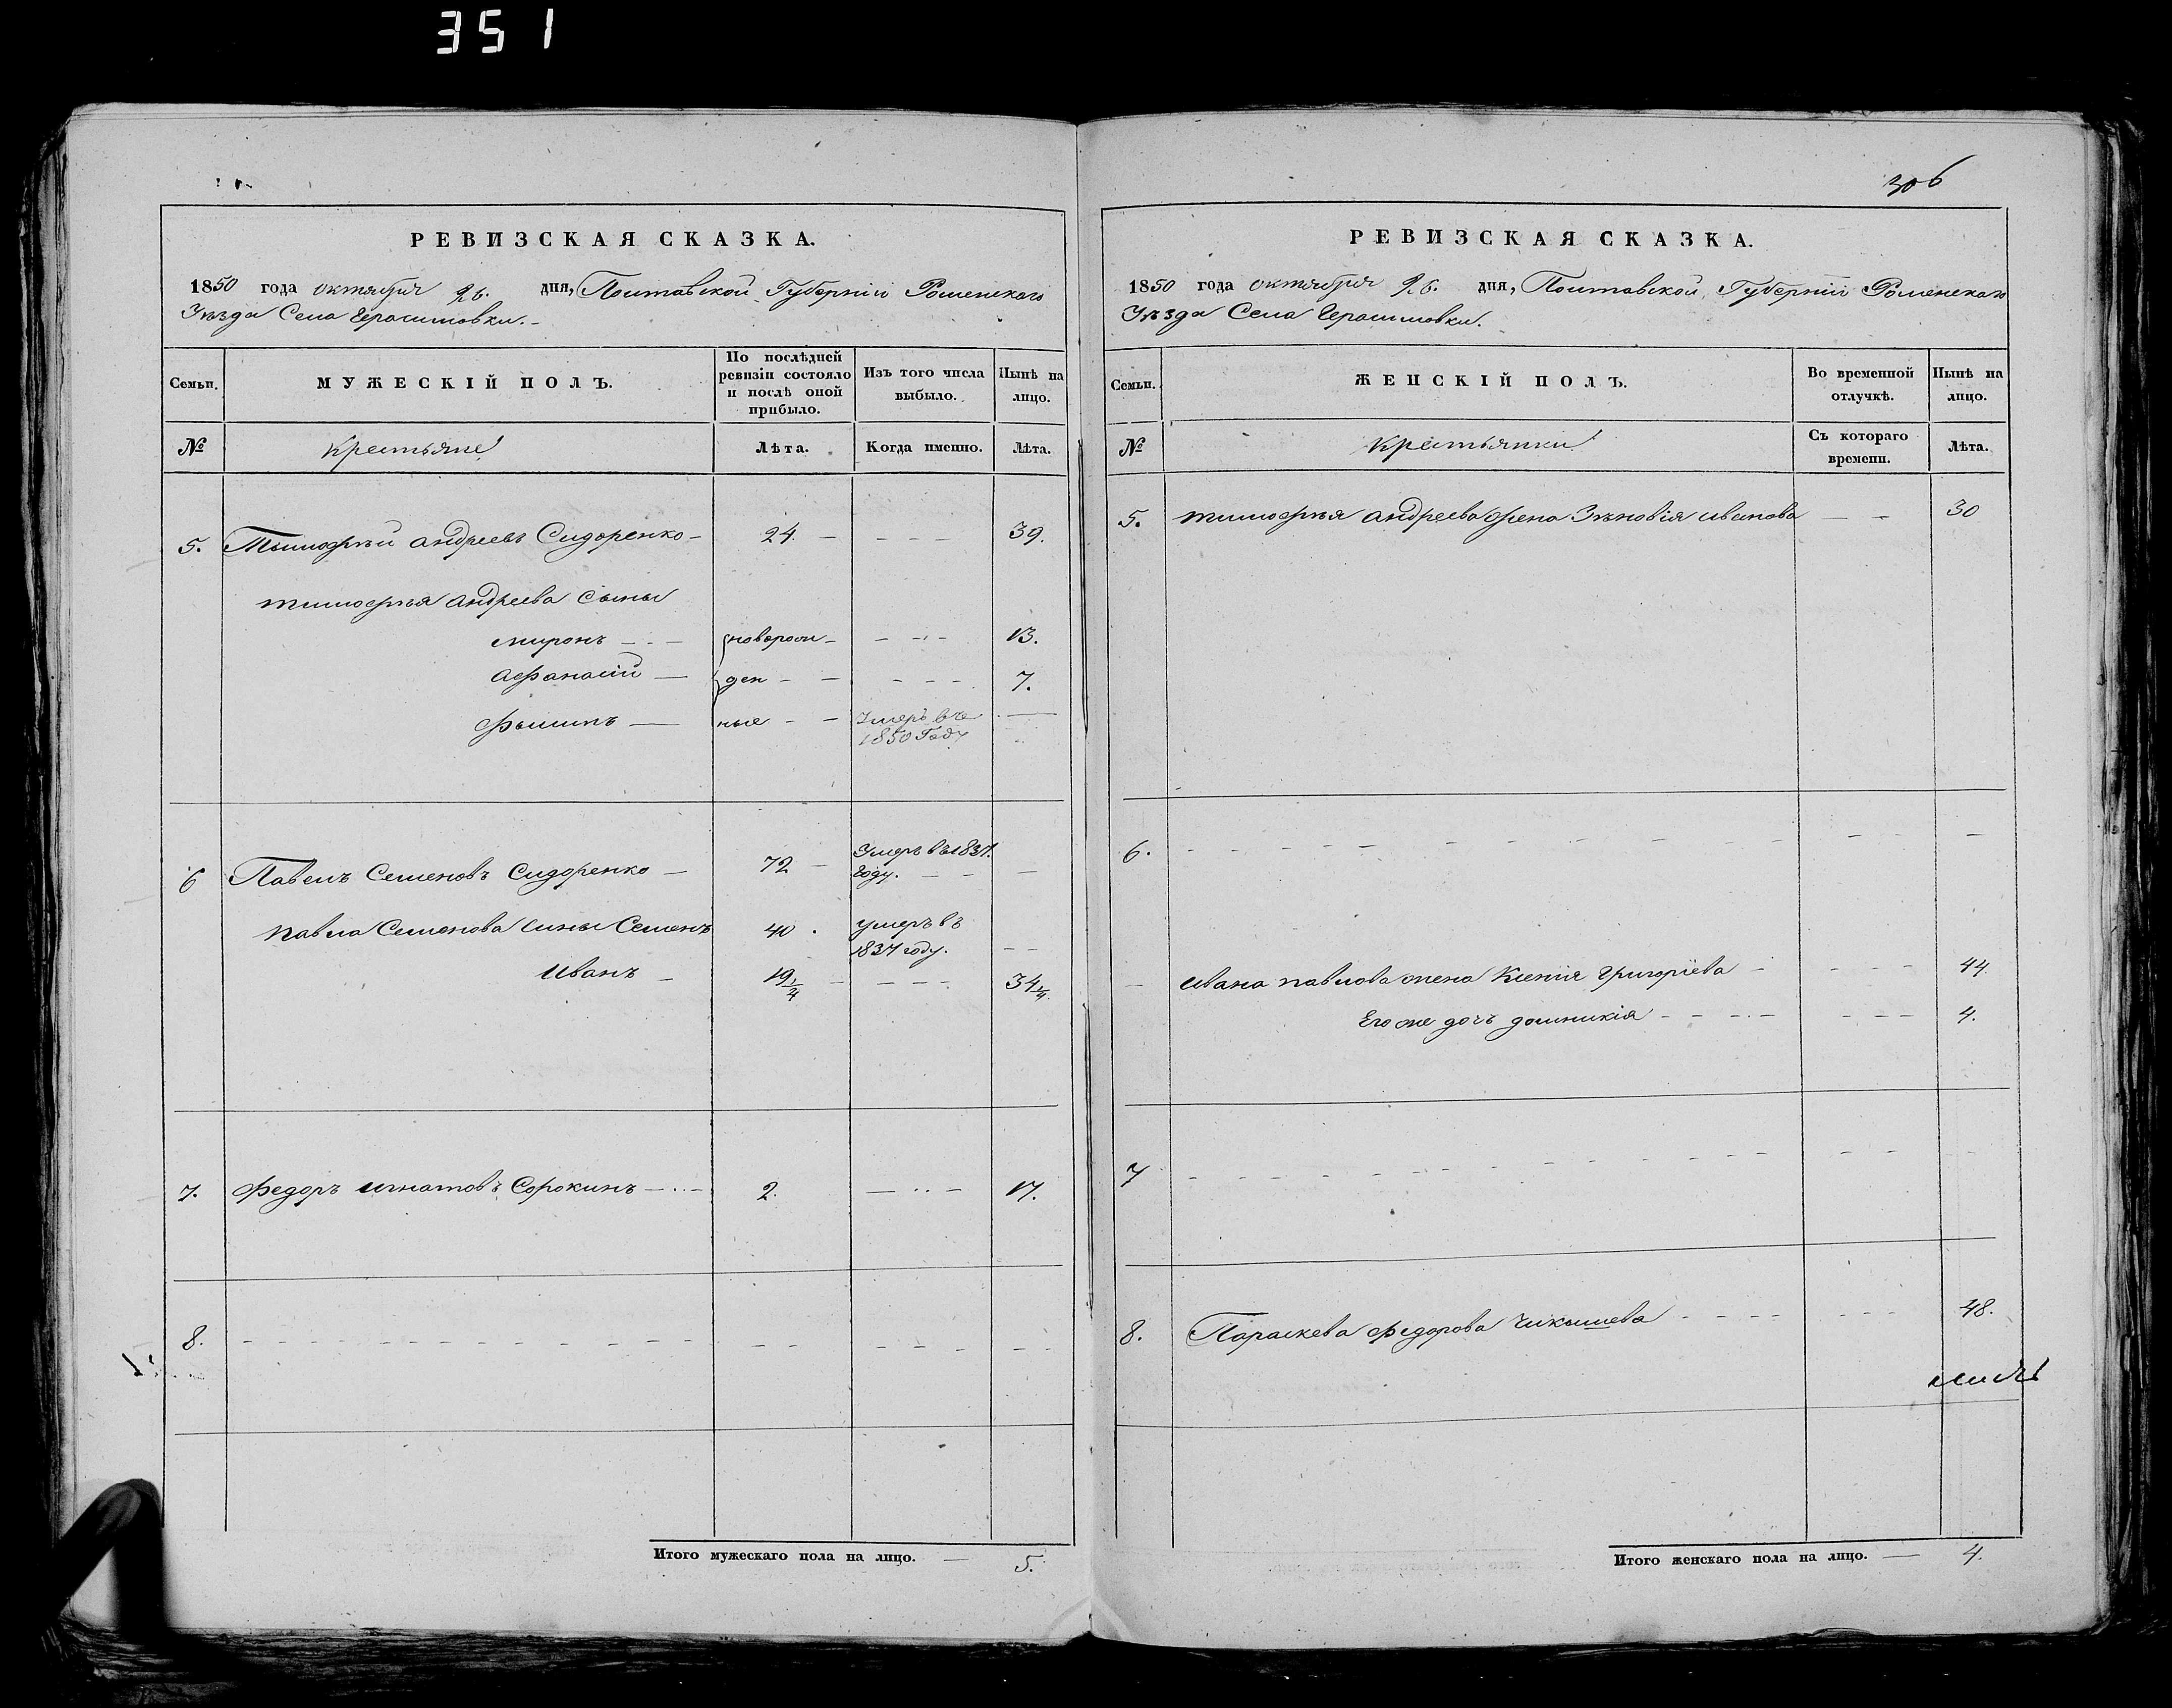 351
306
РЕВИЗСКАЯ СКАЗКА.
1850 года октября 26. дня, Полтавской Губерніи Роменскаго
Уѣзда Села Герасимовки.
Семьи.
МУЖЕСКІЙ ПОЛЪ.
По послѣдней ревизіи состояло и послѣ оной прибыло.
Изъ того числа выбыло.
Нынѣ на лицо.
№ Крестьяне Лѣта. Когда именно. Лѣта.
5. Тимофѣй Андреевъ Сидоренко 24. 39.
Тимофѣя Андреева Сыны
Миронъ новорож 13.
Афанасій ден 7.
Филипъ ные Умеръ въ
1850 Году
6 Павелъ Семеновъ Сидоренко 72 Умеръ въ 1837.
году.
Павла Семенова Сыны Семенъ 40. Умеръ въ
1837 году.
Иванъ 19 1/4 34 1/4
7. Федоръ Игнатовъ Сорокинъ 2. 17.
8.
Итого мужескаго пола на лицо. 5.
РЕВИЗСКАЯ СКАЗКА.
1850 года октября 26. дня, Полтавской Губерніи Роменскаго
Уѣзда Села Герасимовки.
Семьи.
ЖЕНСКІЙ ПОЛЪ.
Во временной отлучкѣ.
Нынѣ на лицо.
№ Крестьянки Съ котораго времени. Лѣта.
5. Тимофѣя Андреева жена Зѣновія Иванова 30
6.
Ивана Павлова жена Ксенія Григоріева 44.
Его же дочь Домникія 4.
7
8. Параскева Федорова 48.
Итого женскаго пола на лицо. 4.